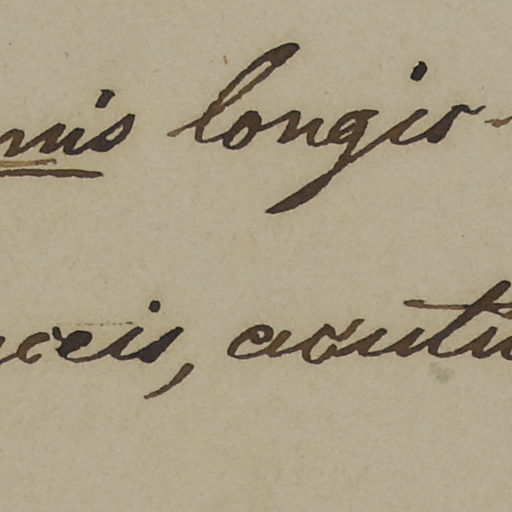 mis longio-
aceis, acutiu